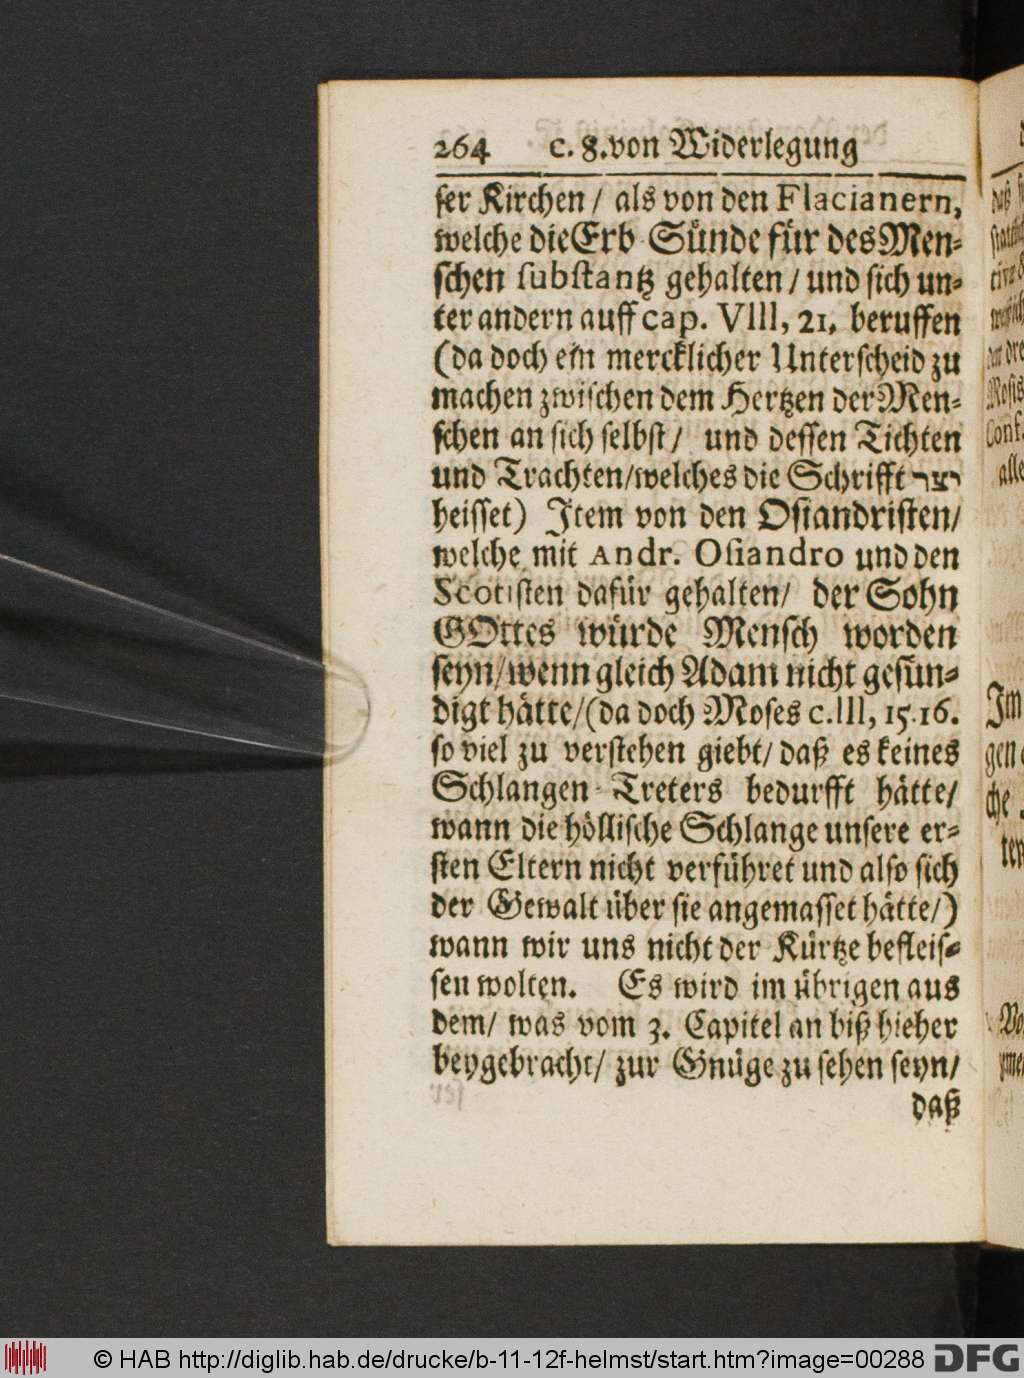 264 c. 8. von Widerlegung
ser Kirchen / als von den Flacianern,
welche die Erb-Sünde für des Men-
schen substantz gehalten / und sich un-
ter andern auff cap. VIII, 21. beruffen
(da doch ein mercklicher Unterscheid zu
machen zwischen dem Hertzen der Men-
schen an sich selbst / und dessen Tichten
und Trachten / welches die Schrifft יצר
heisset) Item von den Osiandristen /
welche mit Andr. Osiandro und den
Scotisten dafür gehalten / der Sohn
GOttes würde Mensch worden
seyn / wenn gleich Adam nicht gesün-
digt hätte / (da doch Moses c. III, 15. 16.
so viel zu verstehen giebt / daß es keines
Schlangen-Treters bedurfft hätte /
wann die höllische Schlange unsere er-
sten Eltern nicht verführet und also sich
der Gewalt über sie angemasset hätte /)
wann wir uns nicht der Kürtze befleis-
sen wolten. Es wird im übrigen aus
dem / was vom 3. Capitel an biß hieher
beygebracht / zur Gnüge zu sehen seyn /
daß
© HAB http://diglib.hab.de/drucke/b-11-12f-helmst/start.htm?image=00288 DFG